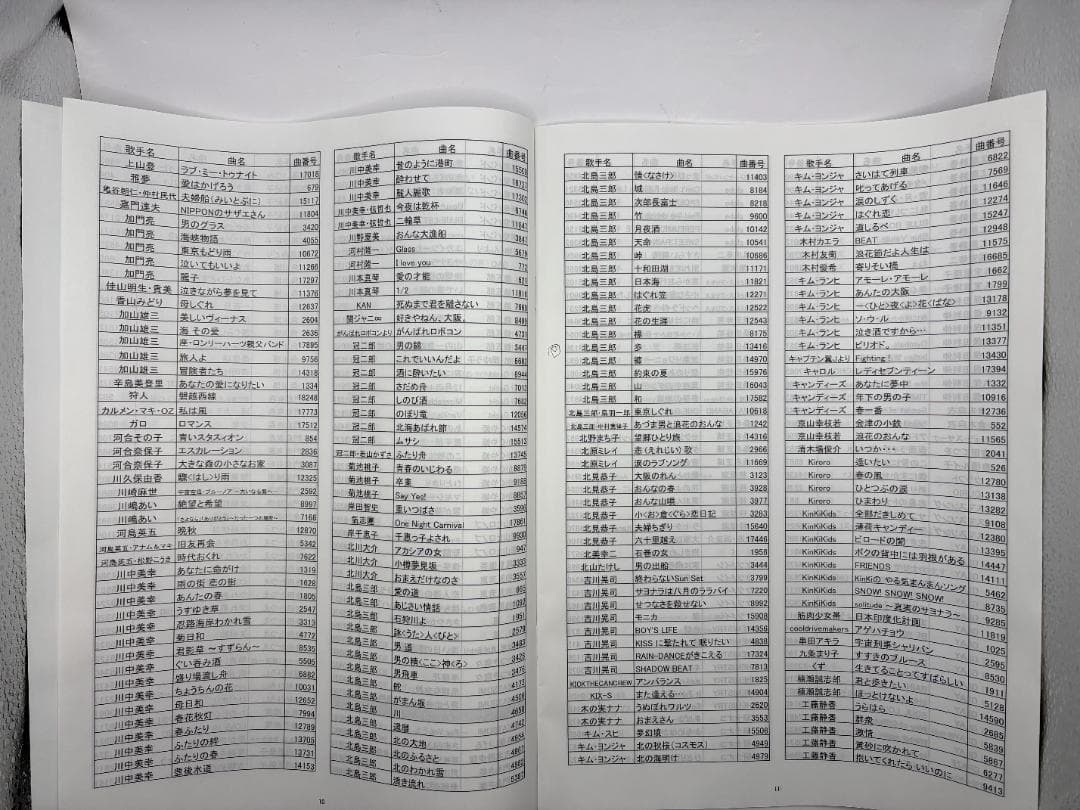 歌手名 曲名 曲番号
上山慧 ラブ・ミー・トゥナイト 17016
雅夢 愛はかげろう 679
亀谷明仁・仲村民代 夫婦船(みいとぶに) 15117
嘉門達夫 NIPPONのサザエさん 11804
加門亮 男のグラス 3420
加門亮 海峡物語 4055
加門亮 東京もどり雨 10672
加門亮 泣いてもいいよ 11266
加門亮 麗子 17297
佳山明生・貴美 泣きながら夢を見て 11376
香山みどり 母しぐれ 12637
加山雄三 美しいヴィーナス 2604
加山雄三 海 その愛 2635
加山雄三 座・ロンリーハーツ親父バンド 17895
加山雄三 旅人よ 9756
加山雄三 冒険者たち 14318
辛島美登里 あなたの愛になりたい 1334
狩人 磐越西線 18248
カルメン・マキ・OZ 私は風 17773
ガロ ロマンス 17512
河合その子 青いスタスィオン 854
河合奈保子 エスカレーション 2836
河合奈保子 大きな森の小さなお家 3087
川久保由香 驟<はし>り雨 12325
川崎麻世 2592
川嶋あい 絶望と希望 8997
川嶋あい 7168
河島英五 晩秋 12870
河島英五・アナム&マキ 旧友再会 5342
河島英五・松野こうき 時代おくれ 7622
川中美幸 あなたに命がけ 1319
川中美幸 雨の街 恋の街 1628
川中美幸 あんたの春 1805
川中美幸 うすゆき草 2547
川中美幸 忍路海岸わかれ雪 3313
川中美幸 菊日和 4772
川中美幸 君影草 ～すずらん～ 8535
川中美幸 ぐい呑み酒 5505
川中美幸 盛り場流し舟 6882
川中美幸 ちょうちんの花 10031
川中美幸 母日和 12652
川中美幸 春花秋灯 7994
川中美幸 春ふたり 12789
川中美幸 ふたりの絆 13705
川中美幸 ふたりの春 13731
川中美幸 豊後水道 14153
10
歌手名 曲名 曲番号
川中美幸 昔のように港町 15509
川中美幸 酔わせて
川中美幸 麗人麗歌
川中美幸・弦哲也 今夜は乾杯
川中美幸・弦哲也 二輪草
川野夏美 おんな大漁船
河村隆一 Glass
河村隆一 I love you
川本真琴 愛の才能
川本真琴 1/2
KAN 死ぬまで君を離さない
関ジャニ∞ 好きやねん、大阪。
がんばれロボコンより がんばれロボコン 4731
冠二郎 男の錦 3447
冠二郎 これでいいんだよ 6682
冠二郎 酒に酔いたい 6944
冠二郎 さだめ舟 7013
冠二郎 しのび酒 7682
冠二郎 のぼり竜 12056
冠二郎 北海あばれ節 14514
冠二郎 ムサシ 15513
冠二郎・若山かずさ ふたり舟 13745
菊池桃子 青春のいじわる 8879
菊池桃子 卒業 9188
菊池桃子 Say Yes! 8857
岸田智史 重いつばさ 3590
氣志團 One Night Carnival 17861
岸千恵子 千恵っ子よされ 9900
北川大介 アカシアの女 947
北川大介 小樽夢見坂 3333
北川大介 おまえだけなのさ 3557
北島三郎 愛の道 805
北島三郎 あじさい情話 1092
北島三郎 石狩川よ 1951
北島三郎 詠<うた>人<びと> 2579
北島三郎 男 道 3483
北島三郎 男の情<ここ>神<ろ> 3429
北島三郎 男飛車 3476
北島三郎 舵 4173
北島三郎 がまん坂 4508
北島三郎 川 4658
北島三郎 還暦 4742
北島三郎 北の大地 4854
北島三郎 北のふるさと 4861
北島三郎 北のわかれ雪 4882
北島三郎 漬き流れ 5387
歌手名 曲名 曲番号
北島三郎 情<なさけ> 11403
北島三郎 城 8184
北島三郎 次郎長富士 8218
北島三郎 竹 9600
北島三郎 月夜酒 10142
北島三郎 天命 10541
北島三郎 峠 10686
北島三郎 十和田湖 11171
北島三郎 日本海 11821
北島三郎 はぐれ笠 12271
北島三郎 花虎 12522
北島三郎 花の生涯 12543
北島三郎 樺 8175
北島三郎 歩 13416
北島三郎 14970
北島三郎 約束の夏 15976
北島三郎 山 16043
北島三郎 和 17582
北島三郎・鳥羽一郎 東京しぐれ 10618
北島三郎・中村美律子 あづま男と浪花のおんな 1242
北野まち子 望郷ひとり旅 14316
北原ミレイ 悲<えれじい>歌 2966
北原ミレイ 涙のラブソング 11669
北見恭子 大阪のれん 3123
北見恭子 おんなの春 3928
北見恭子 おんな山唄 3977
北見恭子 小<お>倉<ぐら>恋日記 3263
北見恭子 夫婦ちぎり 15640
北見恭子 六十里越え 17446
北美幸二 石巻の女 1956
北山たけし 男の出船 3444
吉川晃司 終わらないSun Set 3799
吉川晃司 サヨナラは八月のララバイ 7220
吉川晃司 せつなさを殺せない 8992
吉川晃司 モニカ 15908
吉川晃司 BOY'S LIFE 14359
吉川晃司 KISSに撃たれて眠りたい 4838
吉川晃司 RAIN-DANCEがきこえる 17324
吉川晃司 SHADOW BEAT 7813
KICKTHECANCREW アンバランス 1825
KIX-S また逢える… 14904
木の実ナナ うぬぼれワルツ 2620
木の実ナナ おまえさん 3553
キム・スヒ 夢幻境 15506
キム・ヨンジャ 北の秋桜(コスモス) 4949
キム・ヨンジャ 北の海明け 4979
11
歌手名 曲名 曲番号
キム・ヨンジャ さいはて列車 6822
キム・ヨンジャ 叱ってあげる 7569
キム・ヨンジャ 涙のしずく 11646
キム・ヨンジャ はぐれ恋 12274
キム・ヨンジャ 道しるべ 15247
木村カエラ BEAT 12948
木村友衛 浪花節だよ人生は 11575
木村優希 寄りそい橋 16685
キム・ランヒ アモーレ・アモーレ 1662
キム・ランヒ あんたの大阪 1799
キム・ランヒ 一<ひと>夜<よ>花<ばな> 13178
キム・ランヒ ソ・ウ・ル 9132
キム・ランヒ 泣き酒ですから… 11351
キム・ランヒ ピリオド。 13377
キャプテン翼Jより Fighting! 13430
キャロル レディセブンティーン 17394
キャンディーズ あなたに夢中 1332
キャンディーズ 年下の男の子 10916
キャンディーズ 春一番 12736
京山幸枝若 会津の小鉄 552
京山幸枝若 浪花のおんな 11565
清木場俊介 いつか… 2041
Kiroro 逢いたい 526
Kiroro 春の風 12780
Kiroro ひとつぶの涙 13138
Kiroro ひまわり 13282
KinKiKids 全部だきしめて 9108
KinKiKids 薄荷キャンディー 12382
KinKiKids ビロードの闇 13395
KinKiKids ボクの背中には羽根がある 14447
KinKiKids FRIENDS 14111
KinKiKids KinKiの やる気まんまんソング 5462
KinKiKids SNOW! SNOW! SNOW! 8735
KinKiKids solitude ～真実のサヨナラ～ 9285
筋肉少女帯 日本印度化計画 11819
cooldrivemakers アゲハチョウ 1025
串田アキラ 宇宙刑事シャリバン 2595
九条まり子 すすきのブルース 8530
くず 生きてることってすばらしい 1911
楠瀬誠志郎 君と歩きたい 5128
楠瀬誠志郎 ほっとけないよ 14590
工藤静香 うらはら 2685
工藤静香 群衆 5839
工藤静香 激情 5887
工藤静香 黄砂に吹かれて 6277
工藤静香 抱いてくれたらいいのに 9413